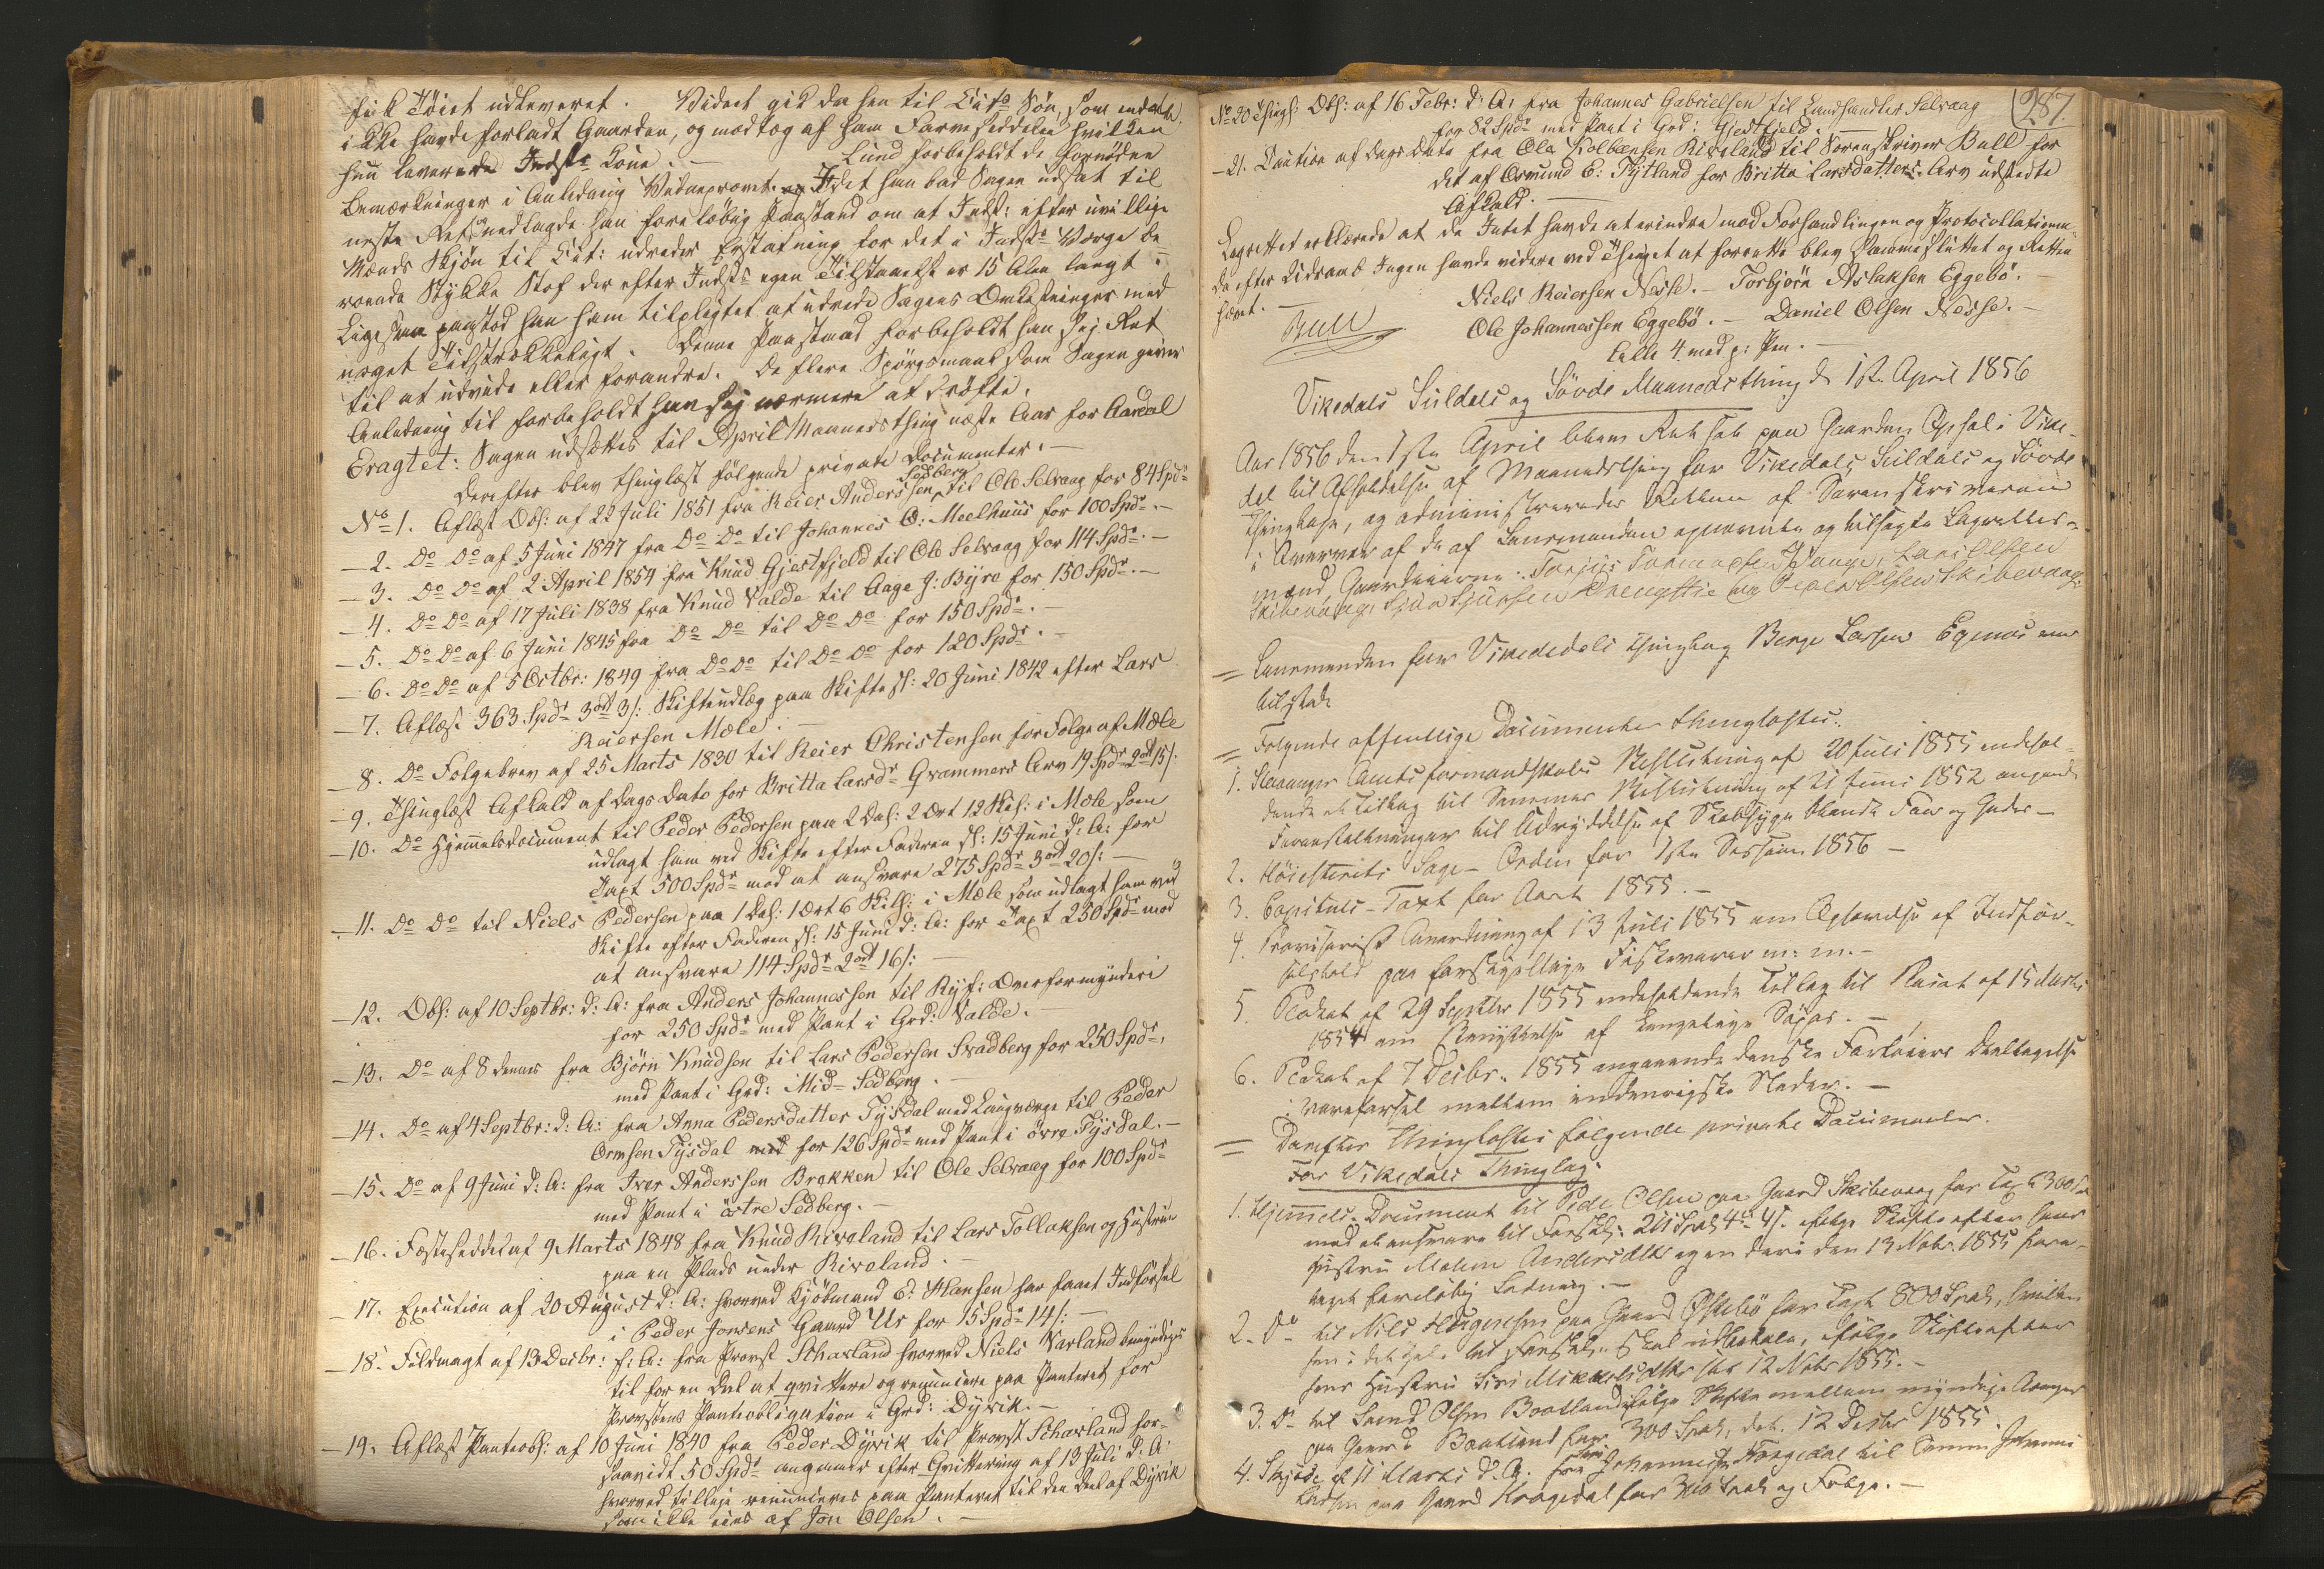 fik Töiet udleveret. Videt gik da hen til Cit⁰ Sön, som endnu
ikke havde forladt Gaarden, og modtog af ham Farveseddelen hvilken
hun leverede Indst⁰ Kone. — Lund forbeholdt de fornödne
Bemærkninger i Anledning Vidneprovet. Idet han bad Sagen udsat til
neste Ret, nedlagde han foreløbig Paastand om at Indst: efter uvillige
Mænds Skjön til Cit: udreder Erstatning for det i Indst⁰ Værge be
roende Stykke Stof der efter Indst⁰ egen Tilstaaelse er 15 Alen langt.
Ligesaa paastod han ham tilpligtet at udrede Sagens Omkostninger med
noget Tilstrækkeligt. Denne Paastand forbeholdt han sej Ret
til at udvide eller forandre. De flere Spörgsmaal som Sagen giver
Anledning til forbeholdt han sej nærmere at dröfte.
Eragtet: Sagen udsættes til April Maanedsthing næste Aar for Aardal
Derefter blev thinglæst fölgende private Documenter. —
N⁰ 1. Aflæst Obl: af 22 Juli 1851 fra Reier Anderssen Sedberg til Ole Selvaag for 84 Spdr
— 2. D⁰ D⁰ af 5 Juni 1847 fra D⁰ D⁰ til Johannes O: Meelhuus for 100 Spdr. —
— 3. D⁰ D⁰ af 2 April 1854 fra Knud Gjestfjeld til Ole Selvaag for 114 Spdr. —
— 4. D⁰ D⁰ af 17 Juli 1838 fra Knud Valde til Aage J: Byre for 150 Spdr. —
— 5. D⁰ D⁰ af 6 Juni 1845 fra D⁰ D⁰ til D⁰ D⁰ for 150 Spdr. —
— 6. D⁰ D⁰ af 5 Octbr: 1849 fra D⁰ D⁰ til D⁰ D⁰ for 120 Spdr. —
— 7. Aflæst 363 Spdr 3 ort 3 s: Skifteudlæg paa Skifte sl: 20 Juni 1842 efter Lars
Reiersen Mæle. —
— 8. D⁰ Folgebrev af 25 Marts 1830 til Reier Christensen for Folge af Mæle
— 9. Thinglæst Afkald af Dags Dato for Britta Larsdr Grammers Arv 19 Spdr 2 ort 15 s:
— 10. D⁰ Hjemmelsdocument til Peder Pedersen paa 2 Dal: 2 Ort 12 Skil: i Mæle som
udlagt ham ved Skifte efter Faderen sl: 15 Juni d: A: for
Taxt 500 Spdr mod at ansvare 275 Spdr 3 ort 20 s: —
— 11. D⁰ D⁰ til Niels Pedersen paa 1 Dal: 1 Ort 6 Skill: i Mæle som udlagt ham ved
Skifte efter Faderen sl: 15 Juni d: A: for Taxt 250 Spdr mod
at ansvare 114 Spdr 2 ort 16 s: —
— 12. Obl: af 10 Septbr: d: A: fra Anders Johannessen til Ryf: Overformynderi
for 250 Spdr med Pant i Grd: Valde. —
— 13. D⁰ af 8 dennes fra Björn Knudsen til Lars Pedersen Svadberg for 250 Spdr,
med Pant i Grd: Mid-Sedberg. —
— 14. D⁰ af 4 Septbr: d: A: fra Anna Pedersdatter Tysdal med Laugværge til Peder
Ormsen Tysdal for 126 Spdr med Pant i övre Tysdal. —
— 15. D⁰ af 9 Juni d: A: fra Iver Anderssen Brekken til Ole Selvaag for 100 Spdr
med Pant i östre Sedberg. —
— 16. Festeseddel af 9 Marts 1848 fra Knud Riveland til Lars Tollaksen og Hustrue
paa en Plads under Riveland. —
— 17. Execution af 20 August d: A: hvorved Kjöbmand E: Hansen har faaet Indförsel
i Peder Jonsens Gaard Ur for 15 Spdr 14 s: —
— 18. Fuldmagt af 13 Decbr: f: A: fra Provst Scharland hvorved Niels Varland bemyndiges
til for en Deel at qvittere og renuncere paa Panteret for
Provstens Panteobligation i Grd: Dyvik. —
— 19. Aflæst Panteobl: af 10 Juni 1840 fra Peder Dyvik til Provst Scharland for-
saavidt 50 Spdr angaaer efter Qvittering af 13 Juli d: A:
hvorved tillige renunceres paa Panteret til den Deel af Dyvik
som ikke eies af Jon Olsen. —
287.
N⁰ 20 Thingl: Obl: af 16 Febr: d: A: fra Johannes Gabrielsen til Landhandler Selvaag
for 82 Spdr med Pant i Grd: Gjestfjeld. —
— 21. Caution af Dags Dato fra Ole Kolbensen Riveland til Sorenskriver Bull for
det af Osmund E: Tytland for Britta Larsdatters Arv udstedte
Afkald. —
Lagrettet erklærede at de Intet havde at erindre mod Forhandlingen og Protocollationen
Da efter Udraab Ingen havde videre ved Thinget at forrette blev Samme sluttet og Retten
hævet. —
Niels Reiersen Nesse. — Torbjörn Aslaksen Eggebö. —
Bull
Ole Johannessen Eggebö. — Daniel Olsen Nesse. —
Alle 4 med p: Pen. —
Vikedals Suldals og Sövde Maanedsthing d. 1ste April 1856
Aar 1856 den 1ste April blev Ret sat paa Gaarden Opsal i Vike-
dal til Afholdelse af Maanedsthing for Vikedals Suldals og Sövde
Thinglag, og administreredes Retten af Sorenskriveren
i Overvær af de af Lensmanden opnævnte og tilsagte Lagrettes-
mænd, Gaardeierne: Torjus Tormodsen Hauge, Lars Olsen
Skibevaag, Sjur Sjursen Ovengstie og Peder Olsen Skibevaag.
= Lensmanden for Vikedals Thinglag Berge Larsen Egenes var
tilstede
= Fölgende offentlige Documenter thinglæstes:
1. Stavanger Amts formandskabs Beslutning af 20 Juli 1855 indehol-
dende et Tillæg til Sammes Beslutning af 21 Juni 1852 angaaende
Foranstaltninger til Udryddelse af Skabsyge blandt Faar og Geder —
2. Höiesterets Sage-Orden for 1ste Session 1856 —
3. Capituls-Taxt for Aaret 1855. —
4. Provisorisk Anordning af 13 Juli 1855 om Ophævelse af Indför-
selstold paa forskjellige Fiskevarer m: m. —
5. Placat af 29 Septbr 1855 indeholdende Tillæg til Placat af 15 Marts
1854 om Benyttelse af Sager. —
6. Placat af 7 Decbr. 1855 angaaende danske Fartöiers Deeltagelse
i Vareförsel mellem indenrigske Steder. —
= Derefter thinglæstes fölgende private Documenter.
For Vikedals Thinglag.
1. Hjemmels-Document til Peder Olsen paa Gaard Skibevaag for Taxt 300 Spd
med at ansvare til 215 Spd 4 ort 4 s. ifölge Skifte efter hans
Hustru Malene Andersdtter den 13 Novbr. 1855 fore-
taget foreløbig —
2. D⁰ til Nils Haagensen paa Gaard Östebö for Taxt 800 Spd, hvilken
han i det hele skal udbetale, ifölge Skifte efter
hans Hustru Siri Mikkelsdtter 12 Novbr 1855. —
3. D⁰ til Svend Olsen Baatland ifölge Skifte mellem myndige Arvinger
paa Gaard Baatland for 300 Spd, dat. 12 Decbr 1855.
4. Skjöde af 11 Marts d. A. fra Johannes Kragedal til
Larsen paa Gaard Kragedal for 300 Spd og Folge. —